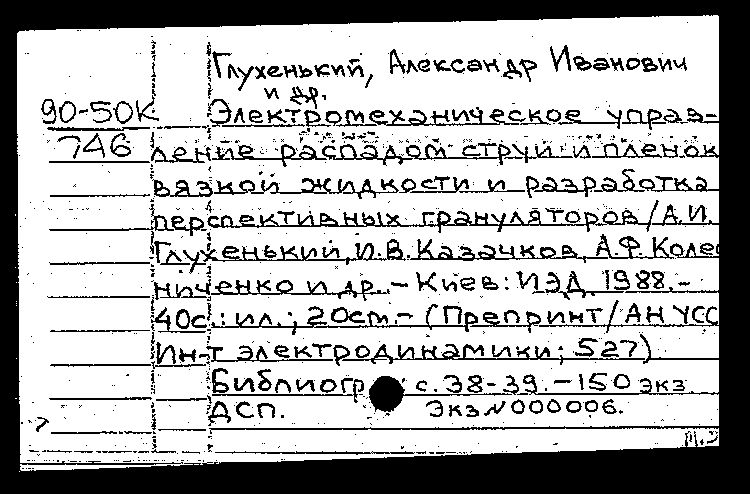 Глухенький, Александр Иванович
и др.
90-50К Электромеханическое управ-
746 ление распадом струй и пленок
вязкой жидкости и разработка
перспективных грануляторов/А.И.
Глухенький, И.В. Казачков, А.Ф. Колес
ниченко и др. – Киев: ИЭД, 1988. –
40с.: ил.; 20см. – (Препринт/АН УСС
Ин-т электродинамики; 527)
Библиогр : с. 38-39. – 150 экз
ДСП. Экз N000006.